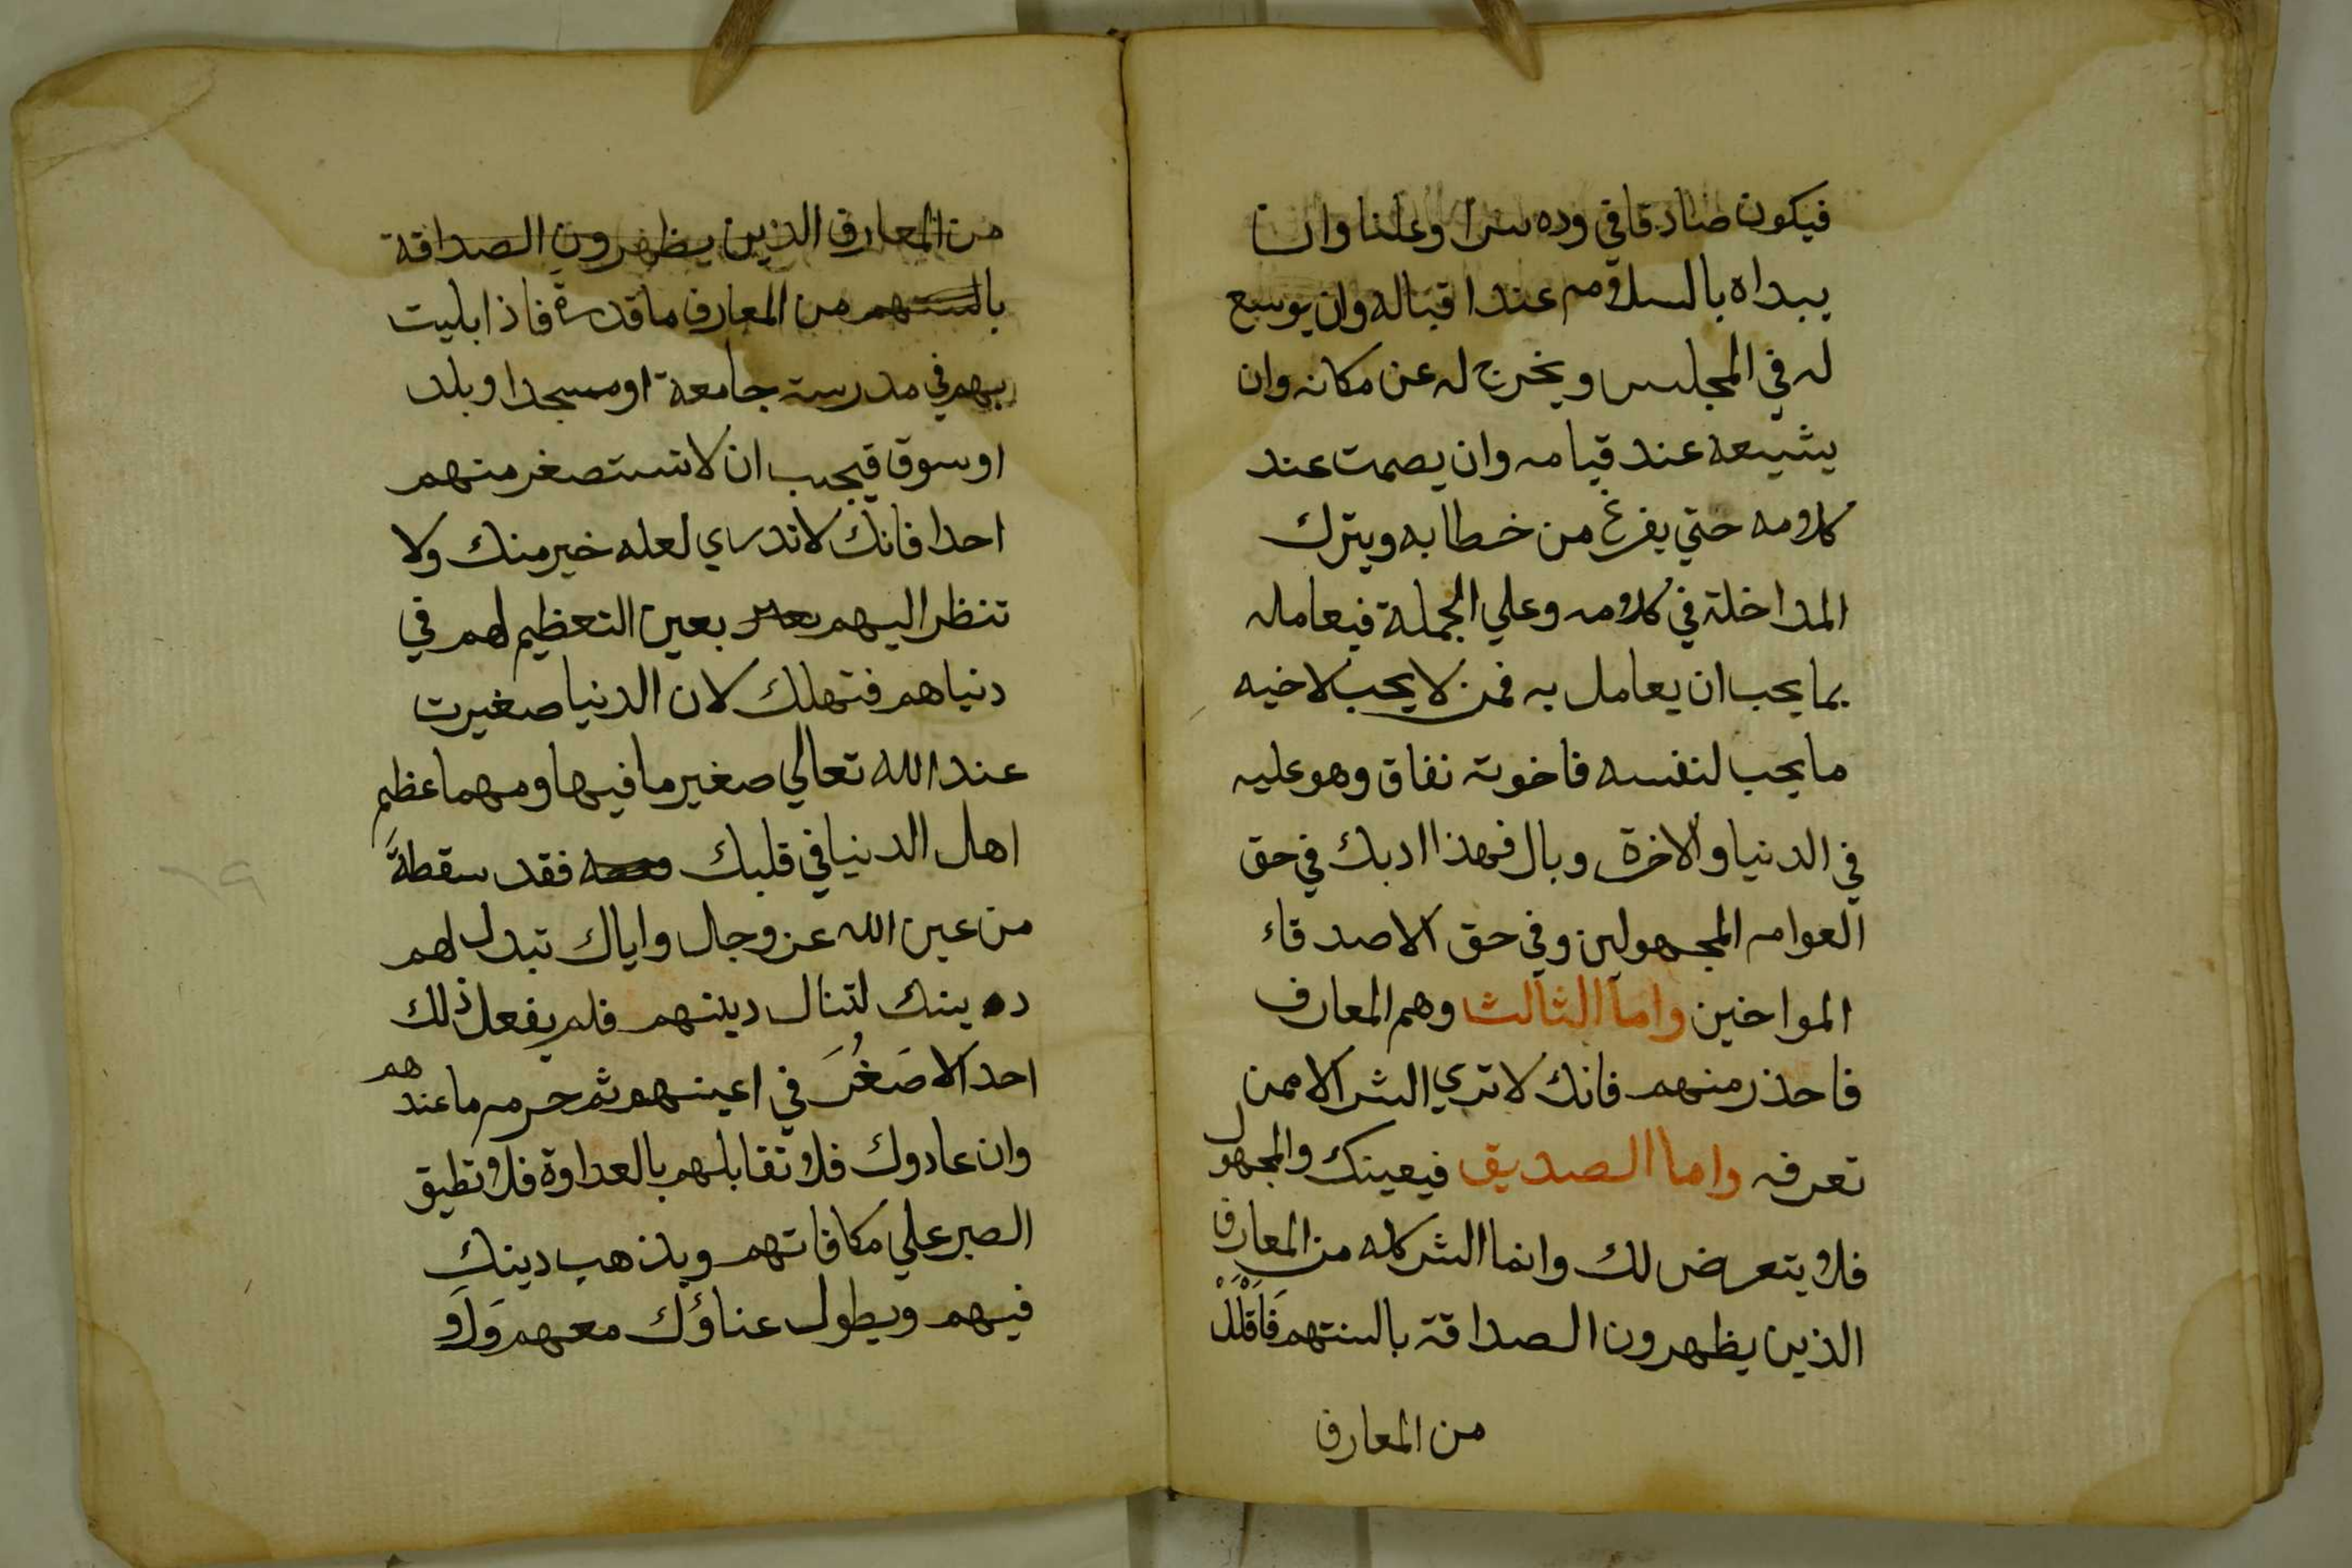 فيكون صادقا في وده سرا وعلنا وان
يبداه بالسلام عند اقباله وان يوسع
له في المجلس ويخرج له عن مكانه وان
يشيعه عند قيامه وان يصمت عند
كلامه حتي يفرغ من خطابه ويترك
المداخلة في كلامه وعلي الجملة فيعامله
بما يحب ان يعامل به فمن لا يحب لاخيه
ما يحب لنفسه فاخوته نفاق وهو عليه
في الدنيا والاخرة وبال فهذا ادبك في حق
العوام المجهولين وفي حق الاصدقاء
المواخين واما الثالث وهم المعارف
فاحذر منهم فانك لا تري الشر الا ممن
تعرفه واما الصديق فيعينك والمجهول
فلا يتعرض لك وانما الشر كله من المعارف
الذين يظهرون الصداقة بالسنتهم فَاَقْلَلْ
من المعارف
من المعارف الذين يظهرون الصداقة
بالسنتهم من المعارف ما قدرة فاذا بليت
بهم في مدرسة جامعة او مسجد او بلد
او سوق فيجب ان لا تستصغر منهم
احدا فانك لا تدري لعله خير منك ولا
تنظر اليهم بعين التعظيم لهم في
دنياهم فتهلك لان الدنيا صغيرت
عند الله تعالي صغير ما فيها ومهما عظم
اهل الدنيا في قلبك فقد سقطةَ
من عين الله عز وجل واياك تبدل لهم
دينك لتنال دينهم فلم يفعل ذلك
احد الا صَغُرَ في اعينهم ثم حرم ما عندهم
وان عادوك فلا تقابلهم بالعداوة فلا تطيق
الصبر علي مكافاتهم ويذهب دينك
فيهم ويطول عناؤك معهم وَلَا